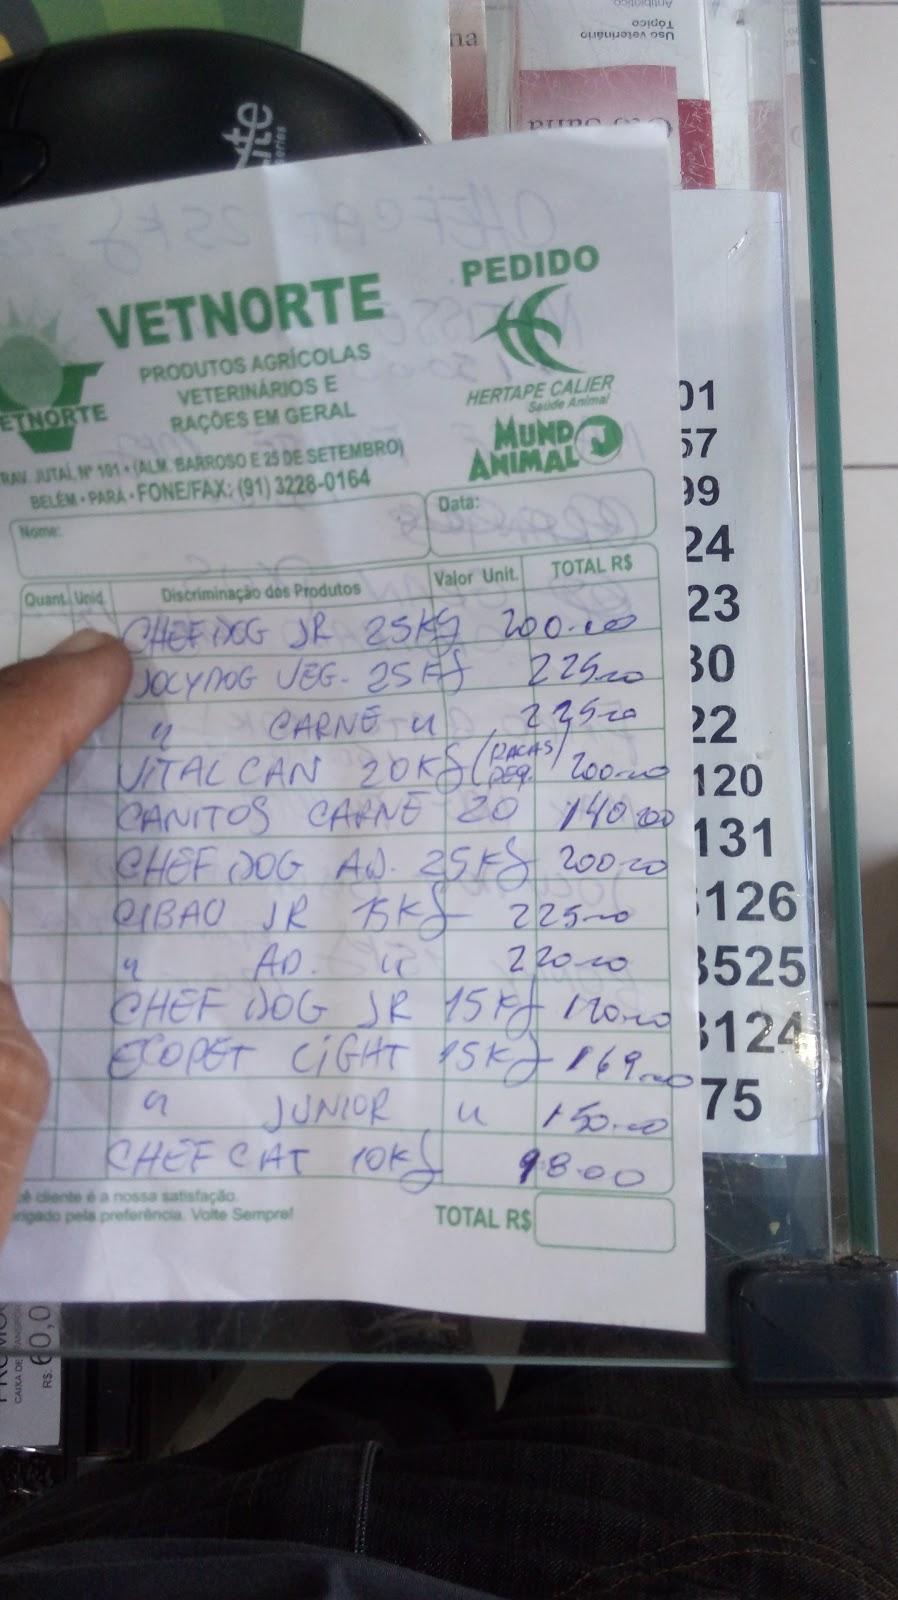 Antibiótico
Tópico
Uso veterinário
VETNORTE
PRODUTOS AGRÍCOLAS
VETERINÁRIOS E
RAÇÕES EM GERAL
ETNORTE
TRAV. JUTAÍ, Nº 101 • (ALM. BARROSO E 25 DE SETEMBRO)
BELÉM • PARÁ • FONE/FAX: (91) 3228-0164
PEDIDO
HERTAPE CALIER
Saúde Animal
MUNDO
ANIMAL
Nome:
Data:
Quant. Unid. Discriminação dos Produtos Valor Unit. TOTAL R$
CHEF DOG JR 25Kg 200.00
JOCYDOG VEG. 25Kg 225.00
" CARNE " 225.00
VITALCAN 20Kg (RACAS PEQ.) 200.00
CANITOS CARNE 20 140.00
CHEF DOG AD. 25Kg 200.00
CIBAU JR 15Kg 225.00
" AD. " 220.00
CHEF DOG JR 15Kg 120.00
ECOPET LIGHT 15Kg 169.00
" JUNIOR " 150.00
CHEF CAT 10Kg 98.00
cê cliente é a nossa satisfação.
rigado pela preferência. Volte Sempre!
TOTAL R$
01
57
99
24
23
30
22
120
131
126
3525
3124
75
R$. 60,0